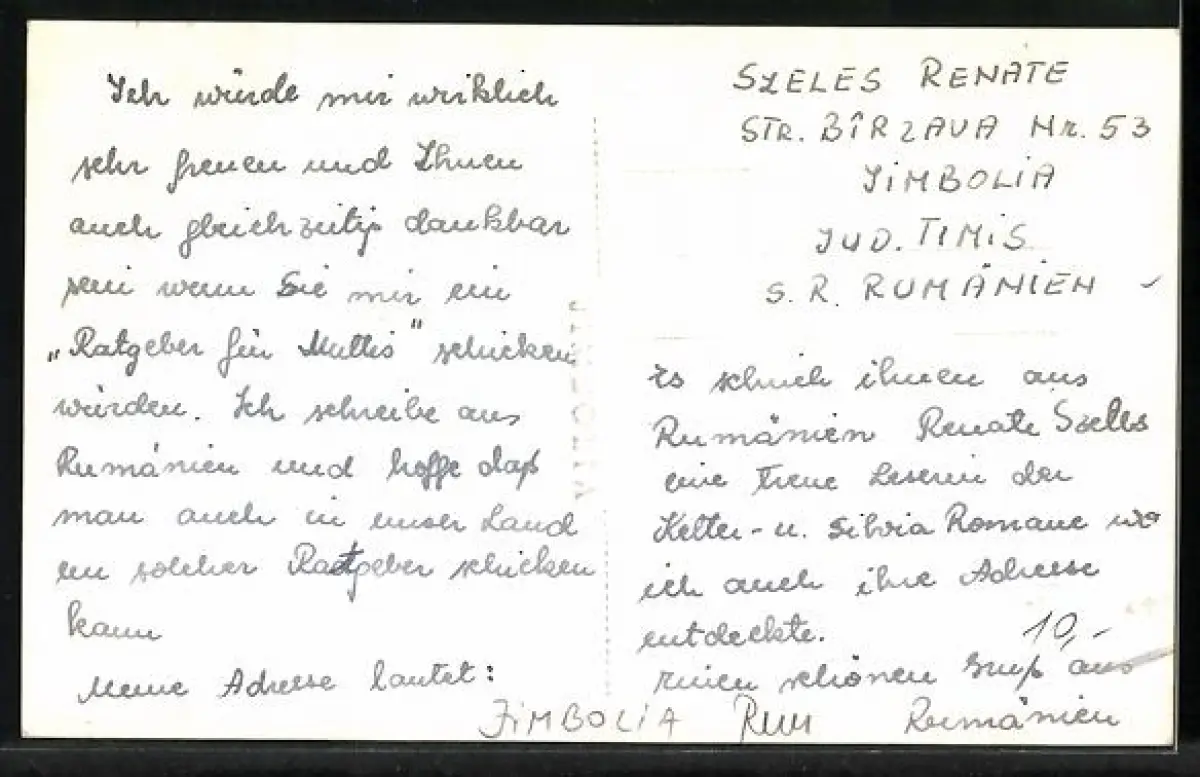 Ich würde mir wirklich
sehr freuen und Ihnen
auch gleichzeitig dankbar
sein wenn Sie mir ein
„Ratgeber für Muttis" schicken
würden. Ich schreibe aus
Rumänien und hoffe daß
man auch in unser Land
ein solcher Ratgeber schicken
kann
Meine Adresse lautet:
SZELES RENATE
STR. BÎRZAVA Nr. 53
JIMBOLIA
JUD. TIMIS
S. R. RUMÄNIEN
Es schrieb ihnen aus
Rumänien Renate Szeles
eine treue Leserin der
Kelter- u. Silvia Romane wo
ich auch ihre Adresse
entdeckte.
10,-
Einen schönen Gruß aus
Rumänien
JIMBOLIA Rum